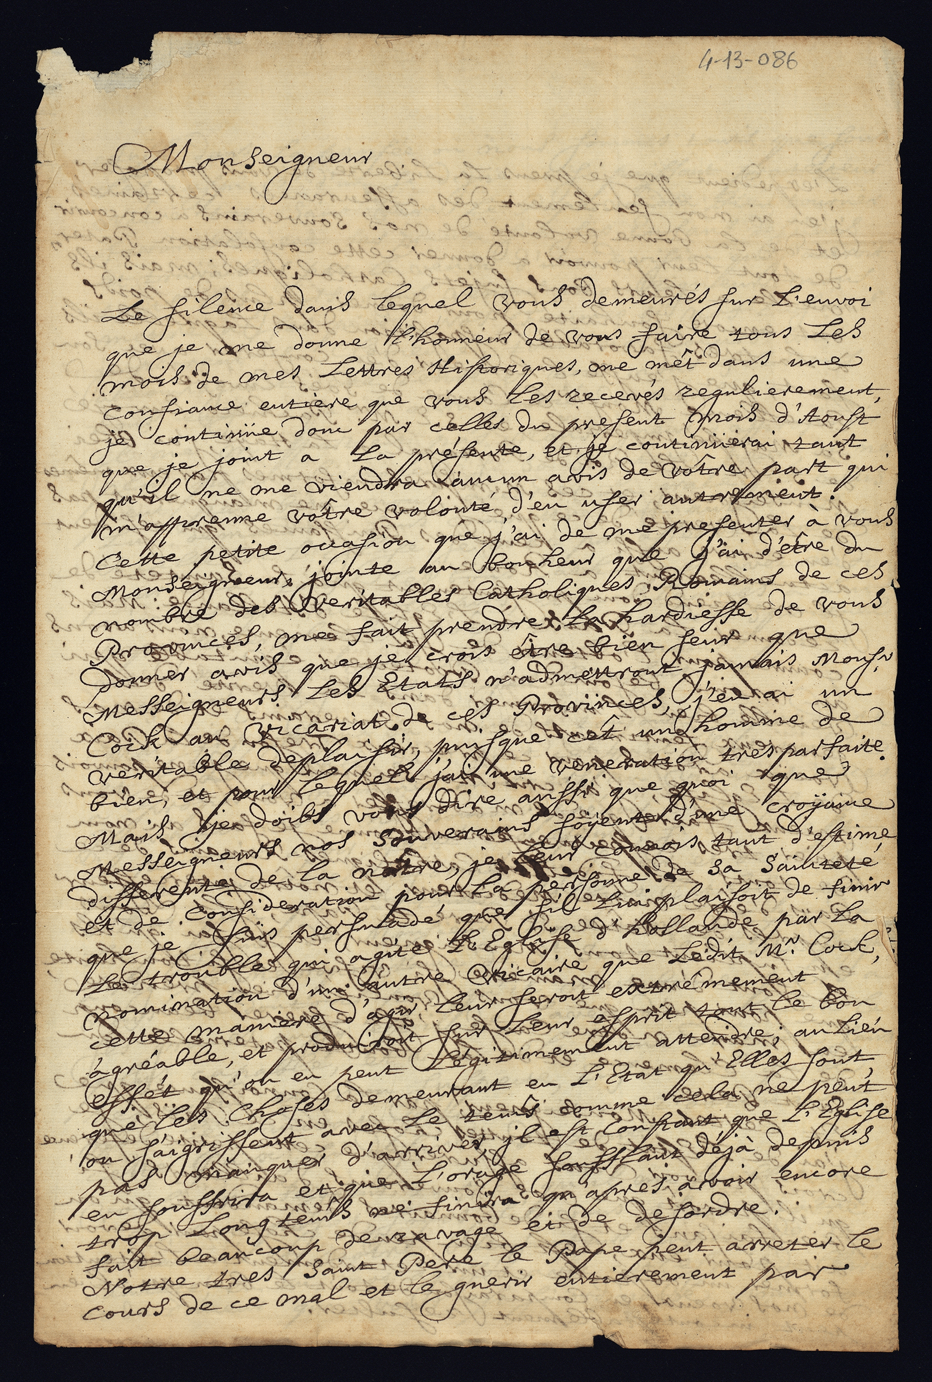 4-13-086
Monseigneur
Le silence dans lequel vous demeurés sur L'envoi
que je me donne l'honneur de vous faire tous Les
mois de mes Lettres Historiques, me mêt dans une
confiance entiere que vous Les recevés regulierement,
je continüe donc par celles du present mois d'Aoust
que je joint a La présente, et je continüerai tant
qu'il ne me viendra aucun avis de vôtre part qui
m'apprenne vôtre volonté d'en user autrement.
Cette petite occasion que j'ai de me presenter à vous
Monseigneur, jointe au bonheur que j'ai d'être du
nombre des veritables Catholiques Romains de ces
Provinces, me fait prendre La hardiesse de vous
donner avis que je crois être bien seur que
Messeigneurs Les Etats n'admettront jamais Monsr
Cock au Vicariat de ces Provinces, j'en ai un
veritable deplaisir, puisque c'et un homme de
bien, et pour lequel j'ai une veneration tres parfaite.
Mais je dois vous dire aussi que quoi que
Messeigneurs nos Souverains soyent d'une croyance
differente de La nôtre, je Leur connois tant d'estime
et de consideration pour La personne de Sa Sainteté,
que je suis persuadé que s'il Lui plaisoit de finir
Le trouble qui agite L'Eglise d'hollande par La
nomination d'un autre Vicaire que Ledit Mr. Cock,
cette maniere d'agir Leur seroit extrémement
àgréable, et produiroit sur Leur esprit tout Le bon
effét qu'on en peut Légitimement attendre; au Lieu
que Les Choses demeurant en L'Etat qu'Elles sont
ou s'aigrissent avec Le tems comme cela ne peut
pas manquer d'arriver, jl est constant que L'Eglise
en souffrira et que L'orage soufflant dejà depuis
trop Longtems ne finira qu'aprés avoir encore
fait beaucoup de ravage et de desordre.
Notre tres Saint Pere le Pape peut arreter le
cours de ce mal et le guerir entierement par